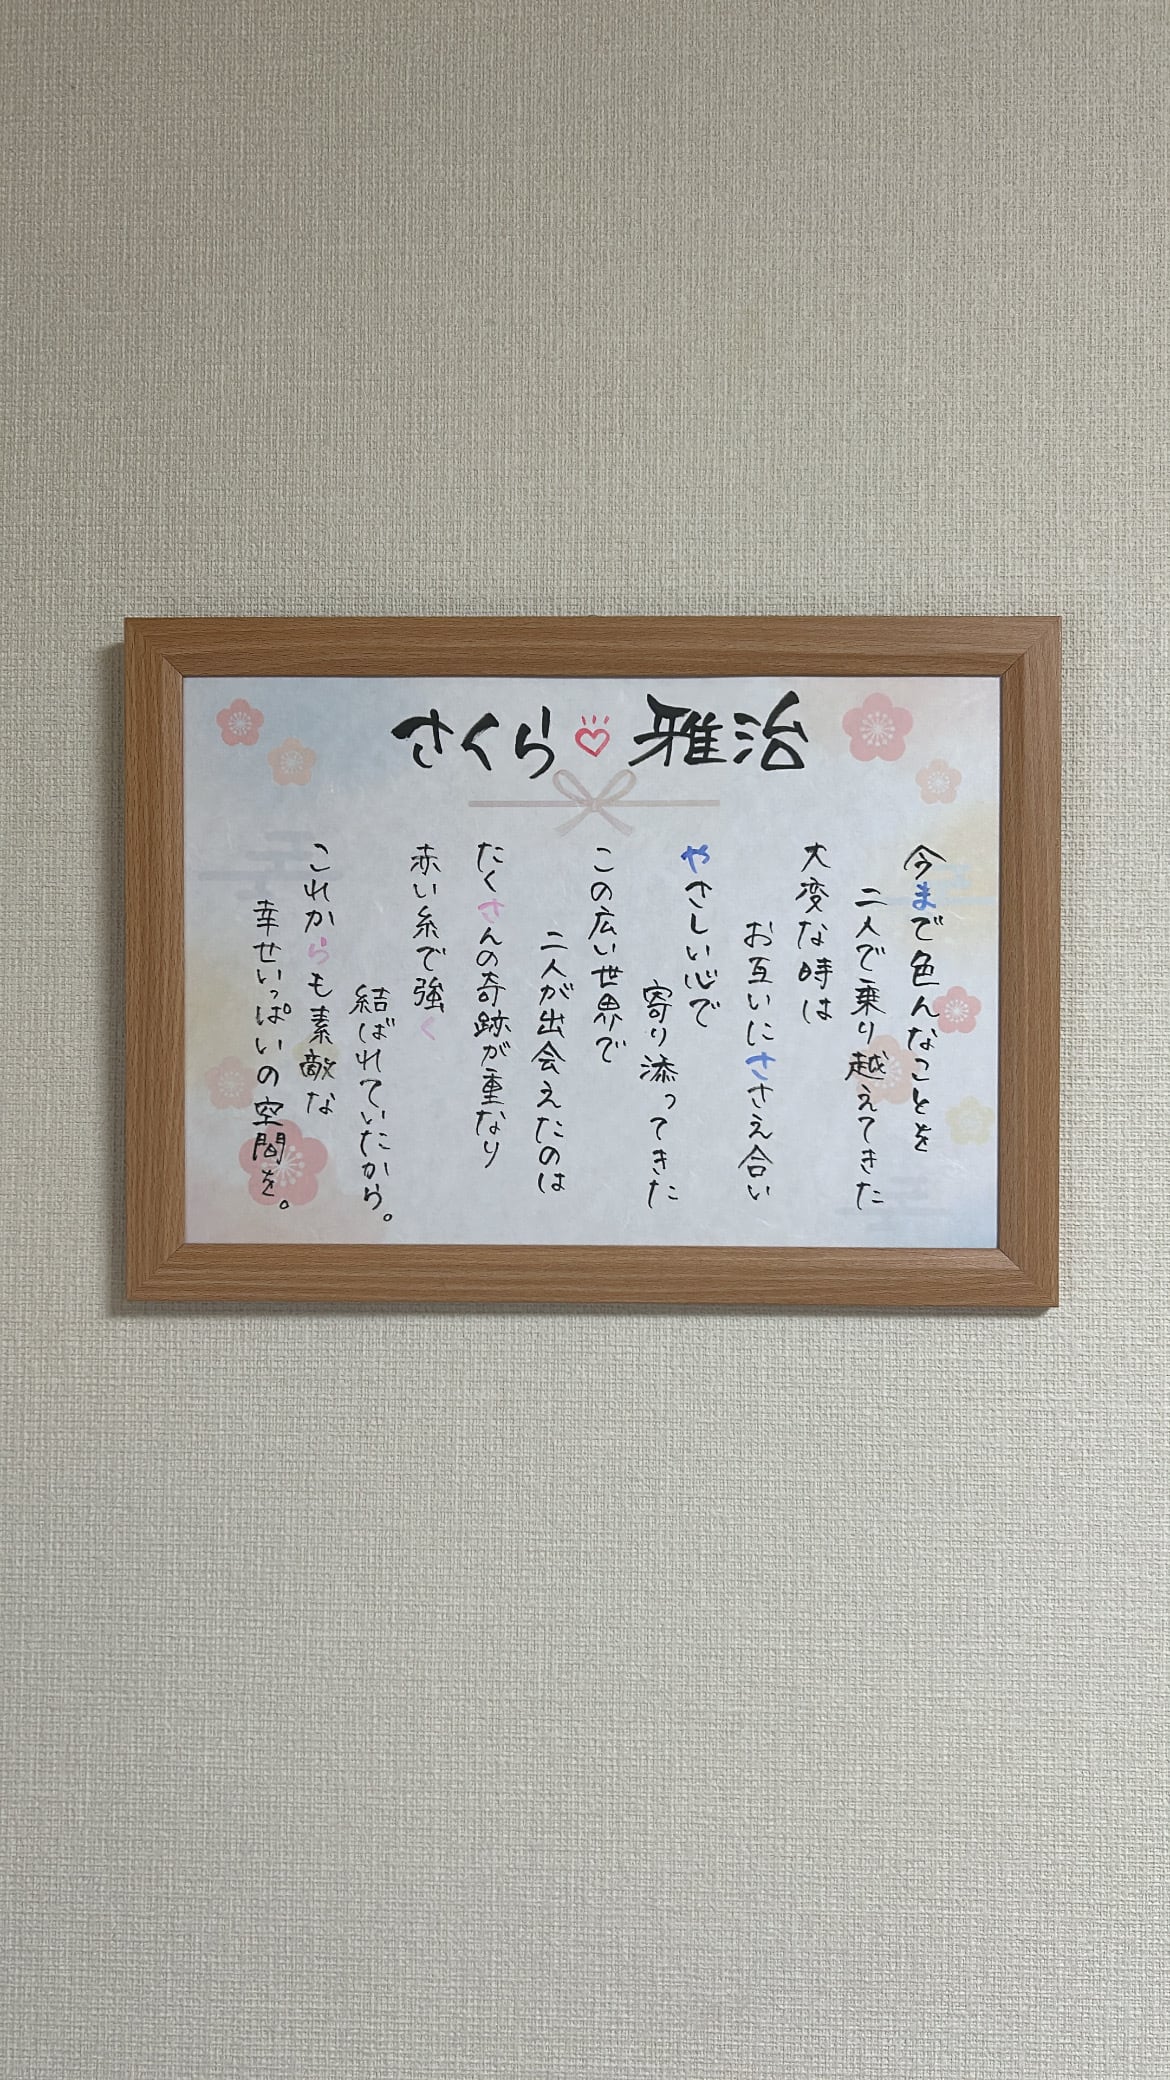 さくら♡雅治
今まで色んなことを
二人で乗り越えてきた
大変な時は
お互いにささえ合い
やさしい心で
寄り添ってきた
この広い世界で
二人が出会えたのは
たくさんの奇跡が重なり
赤い糸で強く
結ばれていたから。
これからも素敵な
幸せいっぱいの空間を。